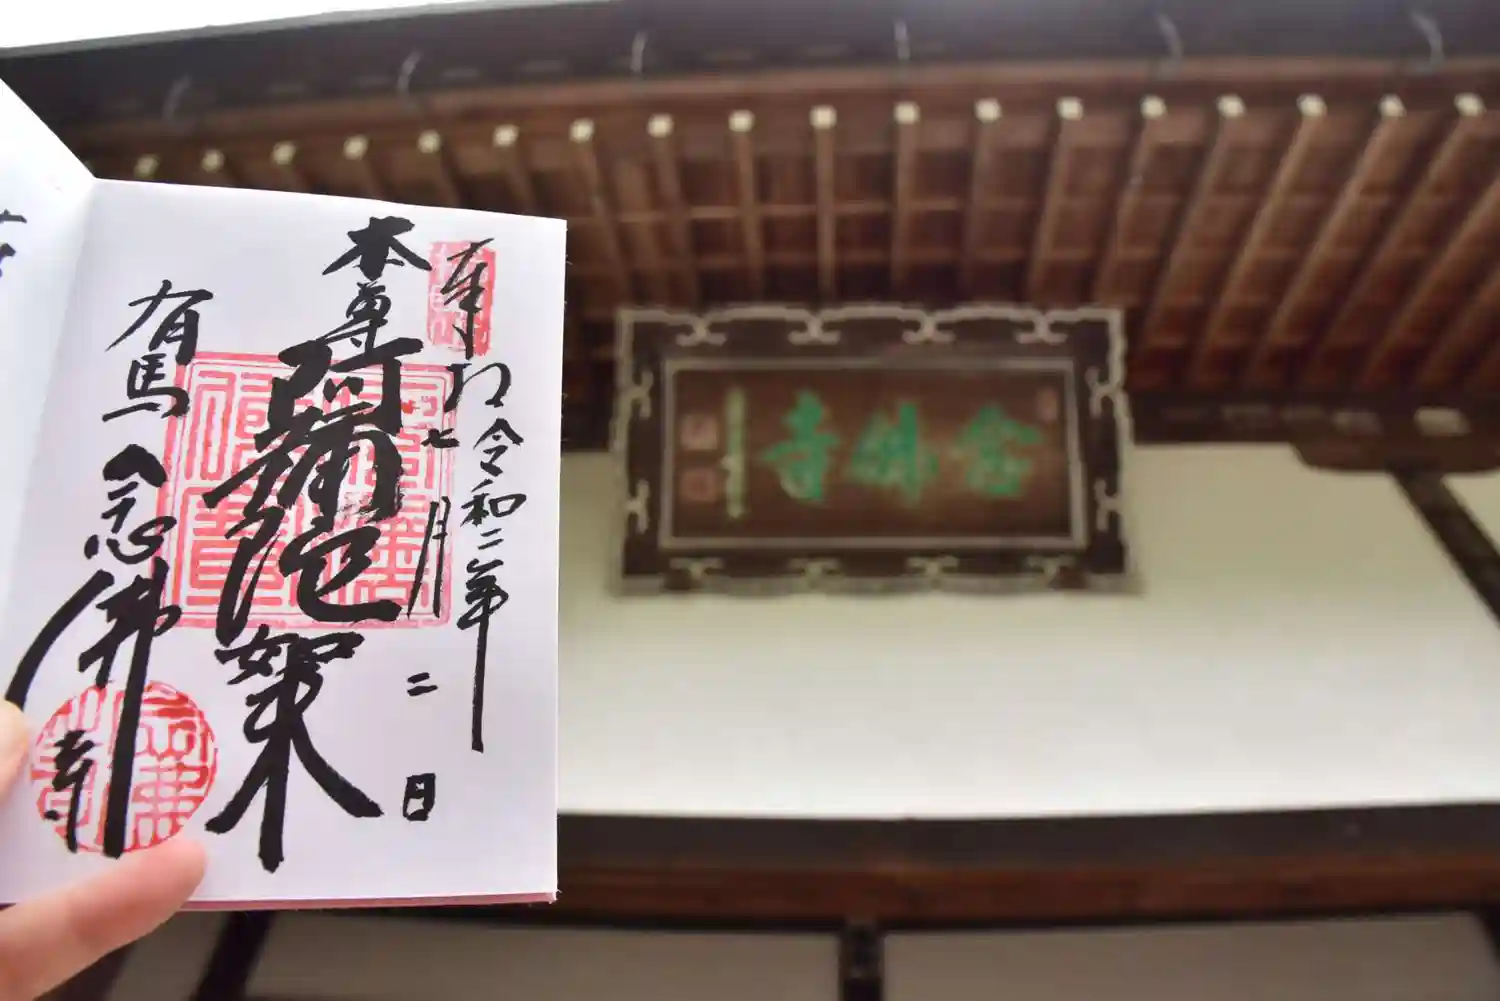 奉拝
令和二年
七月二日
本尊
阿彌陀如来
有馬
念佛寺
念佛寺